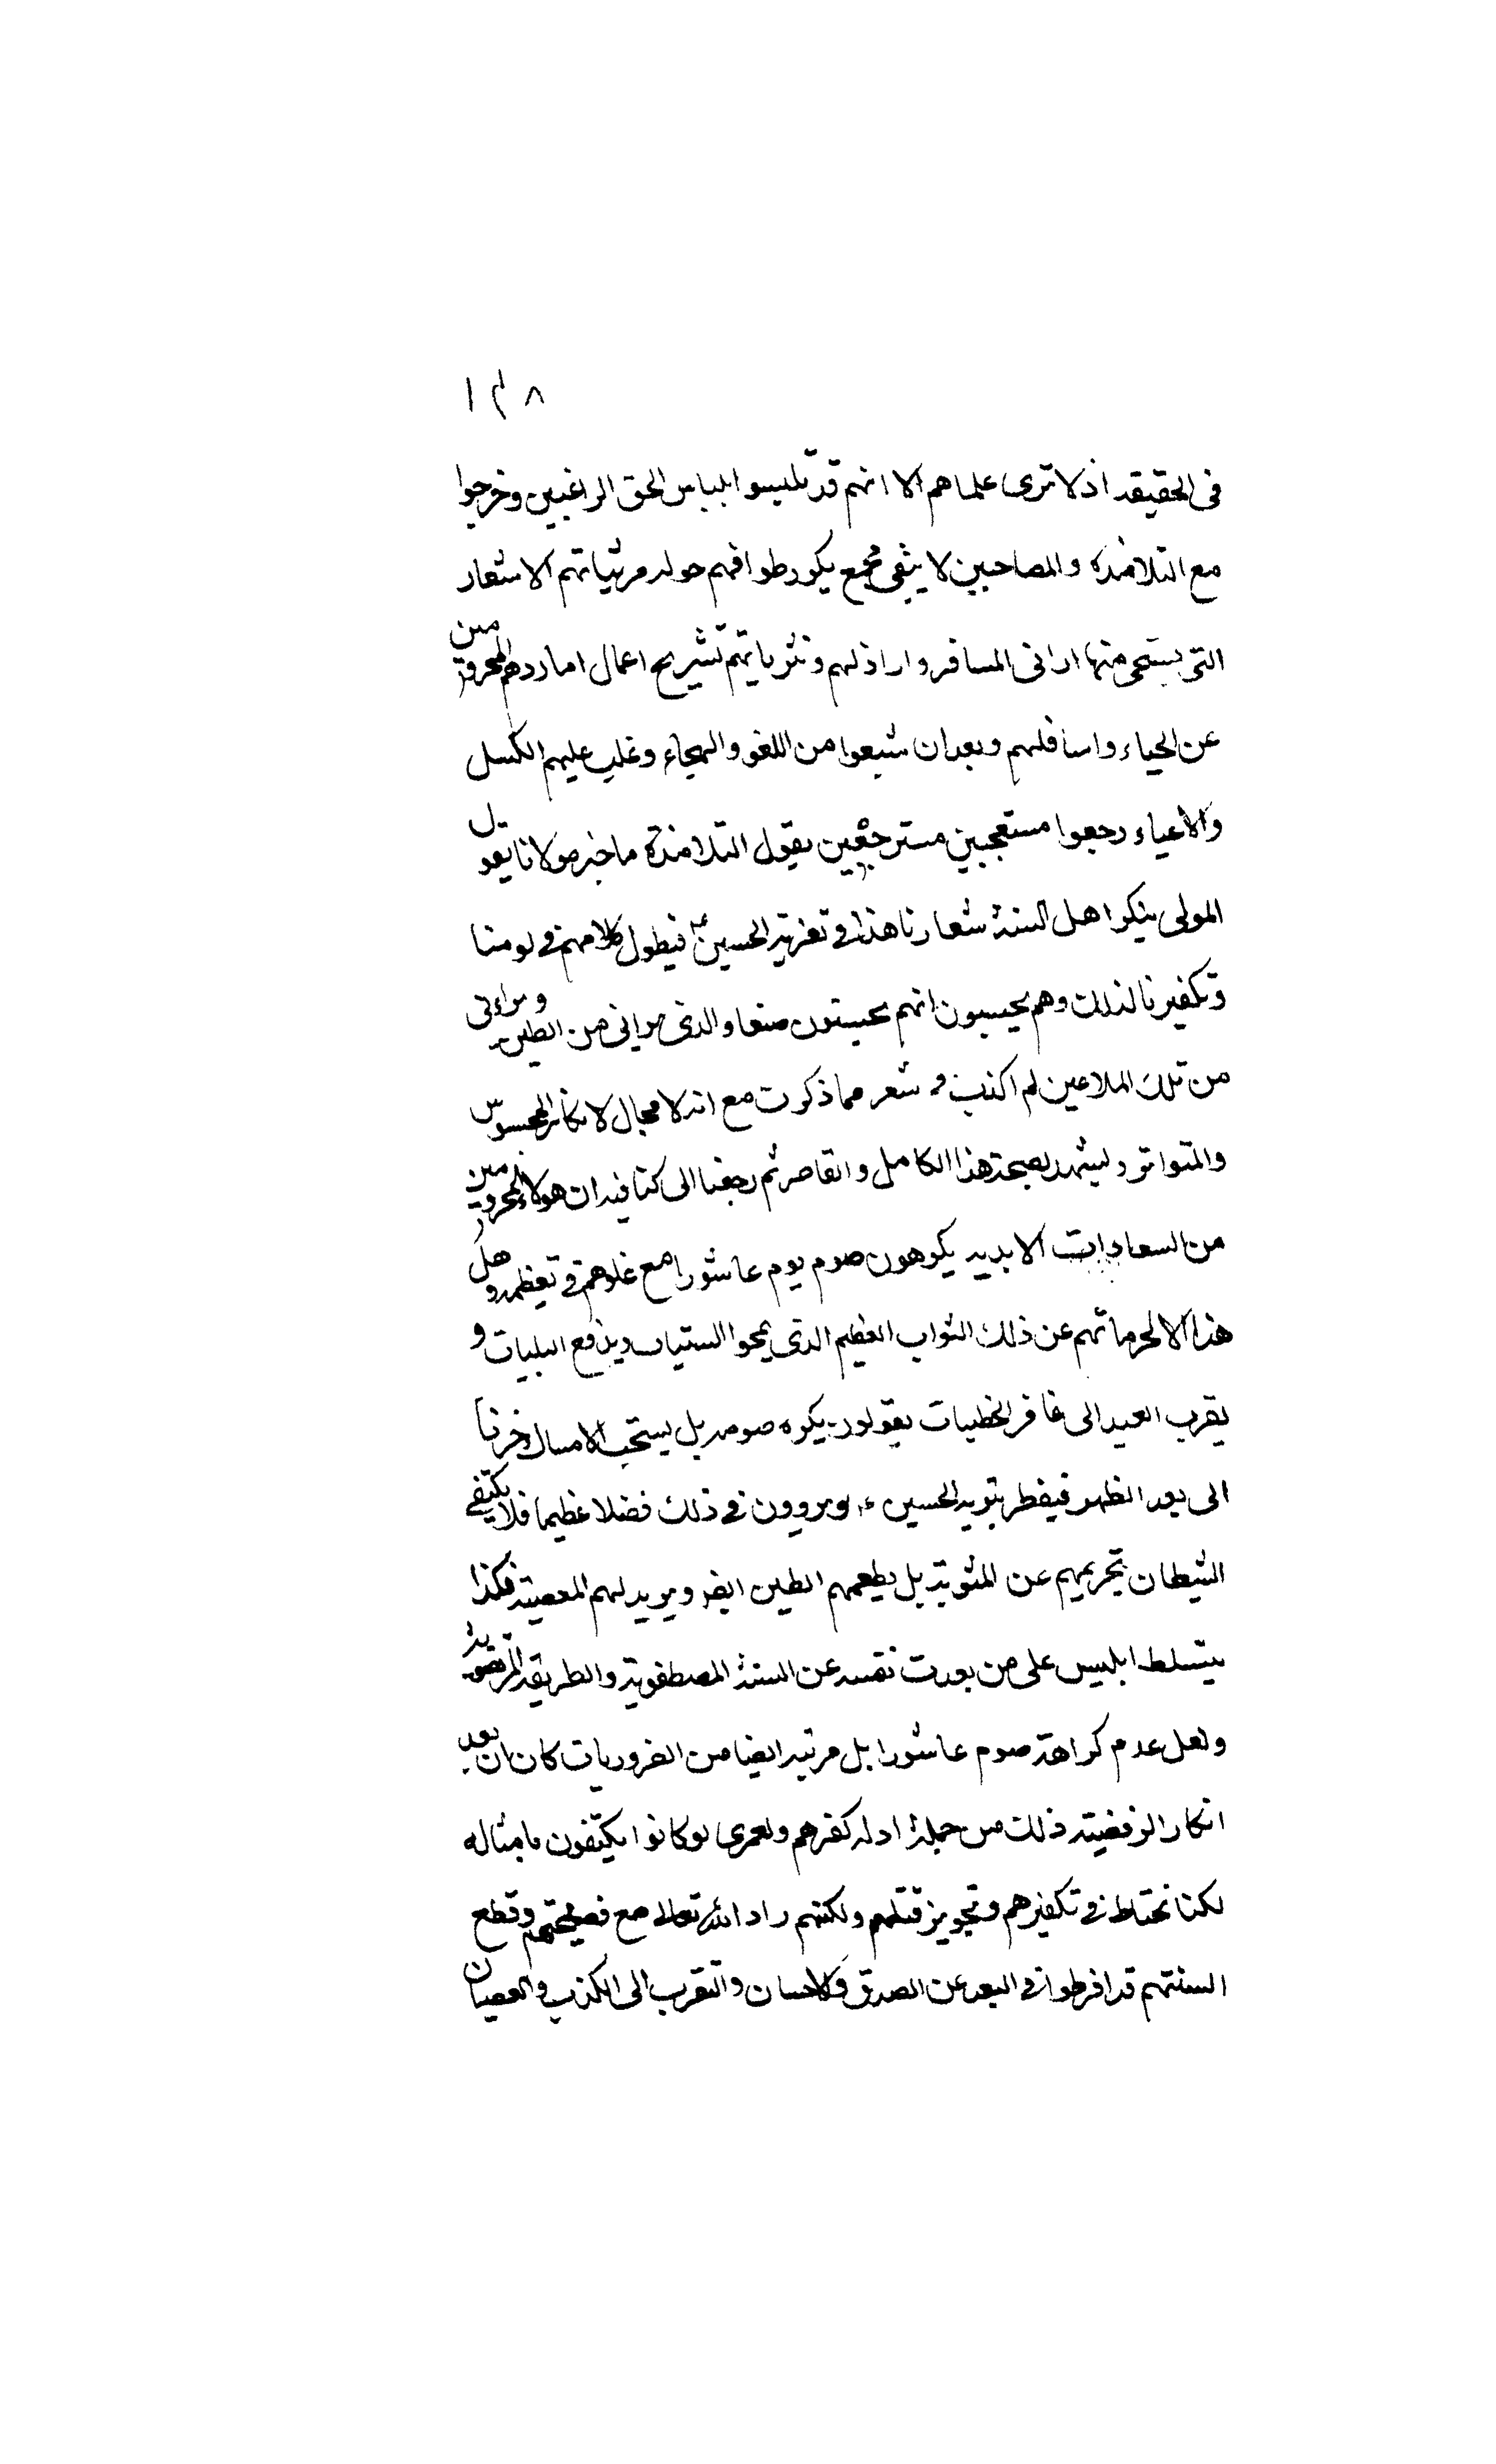 ١٣٨
في الحقيقه اذ لا ترى علماهم الا انهم قد تلبسوا بلباس الحق الراغبين وخرجوا
مع التلامذه والمصاحبين لا يبقى مجمع يكون طوافهم حوله مرثياتهم الاشعار
التى يستحى منها ادانى المسافر واراذلهم ونثرياتهم تشريح اعمال اماردهم المحرومين
عن الحياء واسافلهم وبعد ان شبعوا من اللغو والهجاء وغلب عليهم الكسل
والاعياء رجعوا مستعجبين مسترجعين يقول التلامذة ما خبر مولانا يقول
المولى ينكر اهل السنة شعارنا هذا في تعزية الحسين فيطول كلامهم في لومنا
وتكفيرنا لذلك وهم يحسبون انهم يحسنون صنعا والذى برانى من الطين وبراءتى
من تلك الملاعين لم اكذب في شعر مما ذكرت مع انه لا مجال لانكار المحسوس
والمتواتر وليشهد بصحة هذا الكامل والقاصر ثم رجعنا الى كنا فيه ان هولاء المحرومين
من السعادات الابديه يكرهون صوم يوم عاشورا مع غلوهم في تعظيمه وهل
هذا الا لحرمانهم عن ذلك الثواب العظيم الذى يمحوا السيئات ويدفع البليات و
يقرب العبد الى غافر الخطيات يقولون يكره صومه بل يستحب الامساك حزنا
الى بعد الظهر فيفطر بتربة الحسين ويروون في ذلك فضلا عظيما فلا يكتفى
الشيطان بتحريمهم عن المثوبة بل يطعمهم الطين ايضا ويريد لهم المعصية فكذا
يتسلط ابليس على من بعدت نفسه عن السنة المصطفوية والطريقة المرتضوية
ولعل عدم كراهة صوم عاشورا بل مرتبه ايضا من الضروريات كان ان بعد
انكار الرفضية ذلك من جملة ادله كفرهم ولعمرى لو كانوا يكتفون بامثاله
لكنا نحتاط في تكفيرهم وتجويز قتلهم ولكنهم زاد الله تعالى مع فضيحتهم وقطع
السنتهم قد افرطوا في البعد عن الصدق والاحسان والتقرب الى الكذب والعصيان